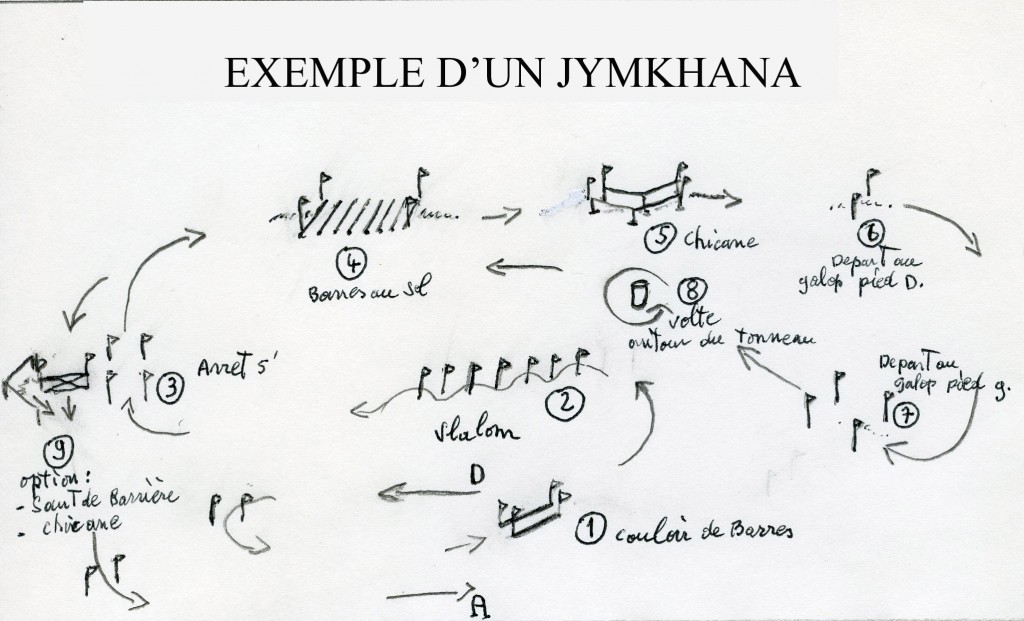 EXEMPLE D'UN JYMKHANA
4
Barres au sol
5 Chicane
6
Depart au
galop pied D.
8
volte
autour du Tonneau
3
Arret 5'
2
slalom
Depart au
galop pied g.
7
9
option:
- Saut de Barrière
- chicane
D
1 couloir de Barres
A